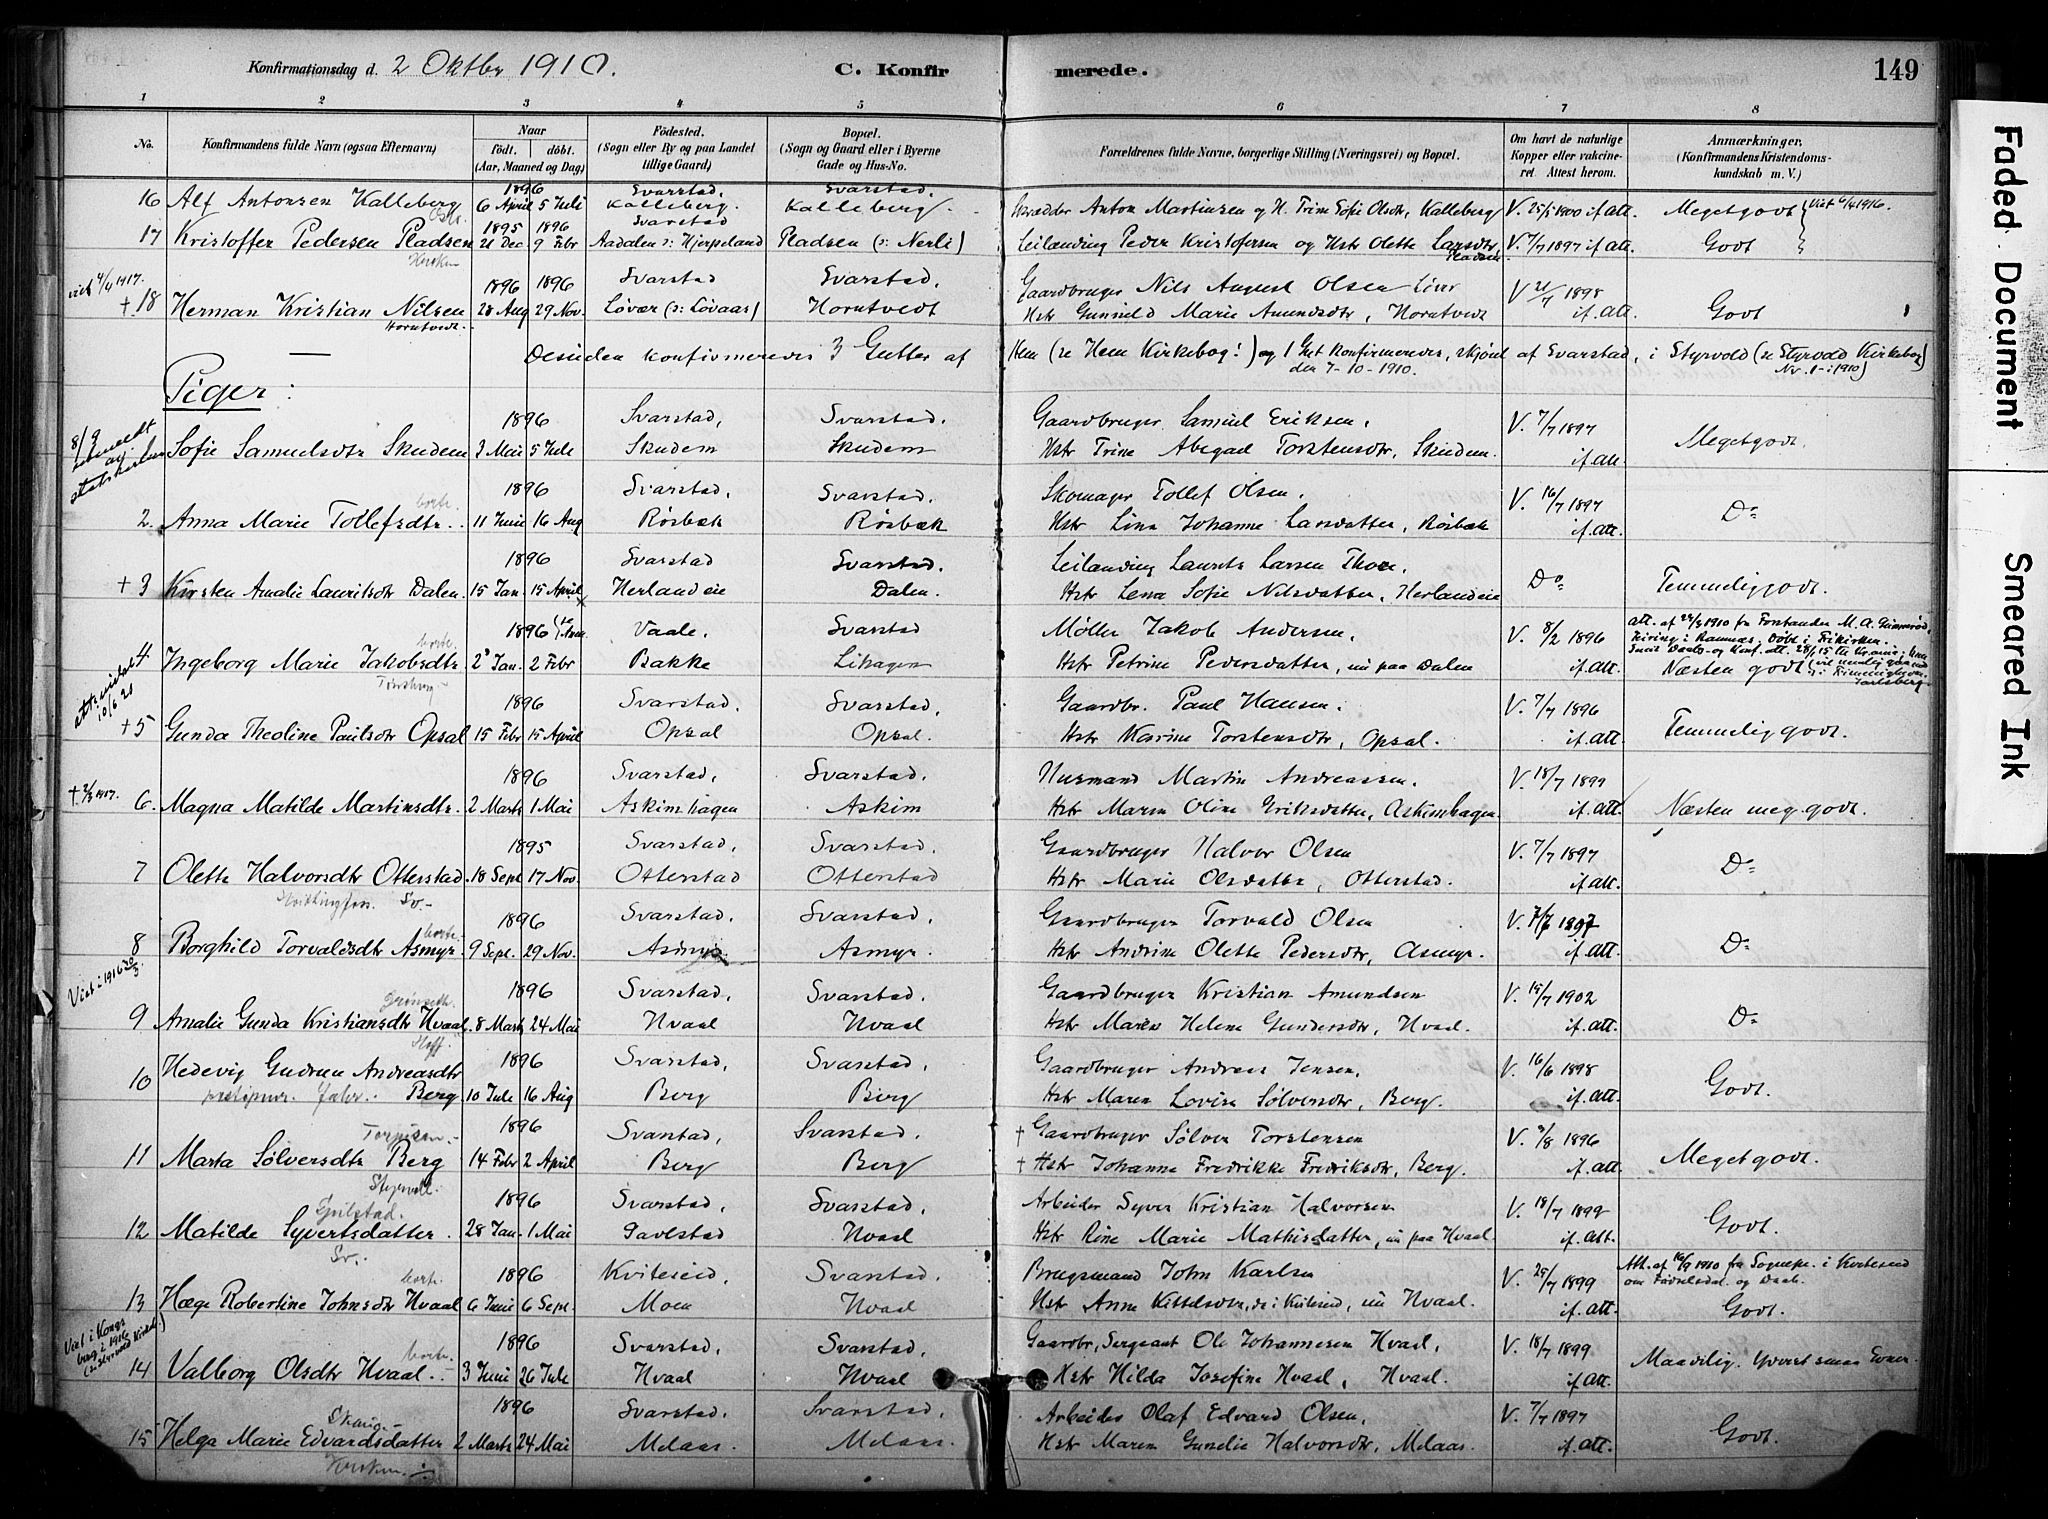 Konfirmationsdag d. 2 Oktbr 1910. C. Konfirmerede. 149
1 2 3 4 5 6 7 8
No. Konfirmandens fulde Navn (ogsaa Efternavn) Naar födt. döbt. (Aar, Maaned og Dag) Födested. (Sogn eller By og paa Landet tillige Gaard) Bopæl. (Sogn og Gaard eller i Byerne Gade og Hus-No. Forældrenes fulde Navne, borgerlige Stilling (Næringsvei) og Bopæl. Om havt de naturlige Kopper eller vakcineret. Attest herom. Anmærkninger. (Konfirmandens Kristendomskundskab m. V.)
1896 Svarstad. Svarstad.
16 Alf Antonsen Kalleberg 6 April 5 Juli Kalleberg. Kalleberg. Skrædder Anton Martinsen og H. Trine Sofie Olsdtr, Kalleberg V. 25/5 1900 if. att. Megetgodt Viet 6/4 1916.
1895 1896 Svarstad
17 Kristoffer Pedersen Pladsen 21 Dec 9 Febr Aadalen s: Hjerpeland Pladsen (s: Nerli) Leilænding Peder Kristofersen og Hstr Olette Larsdtr, Pladsen V. 7/7 1897 if. att. Godt
viet 4/4 1917. 1896 1896 Svarstad Svarstad. Gaardbruger Nils August Olsen V 21/7 1898
+ 18 Herman Kristian Nilsen Horntvedt. 28 Aug 29 Nov. Løvær (s: Løvaas) Horntvedt Hstr Gunnild Marie Amundsdtr, Horntvedt if. att. Godt
Desuden konfirmeredes 3 Gutter af Hem (se Hem Kirkebog!) og 1 Gut konfirmeredes, skjønt af Svarstad, i Styrvold (se Styrvold Kirkebog
den 7-10-1910. Nr. 1 : 1910)
Piger:
1896 Svarstad, Svarstad. Gaardbruger Samuel Eriksen, V. 7/7 1897
8/9 utmeldt av statskirken Sofie Samuelsdtr Skudem 3 Mai 5 Jule Skudem Skudem Hstr Trine Abegael Torstensdtr, Skudem. if. att. Megetgodt.
1896 Svarstad, Svarstad. Skomager Tollef Olsen. V. 16/7 1897
2. Anna Marie Tollefsdtr. 11 Juni 16 Aug Røsbæk Røsbæk Hstr Lina Johanne Larsdatter, Røsbæk if. att. Do
1896 Svarstad Svarstad. Leilænding Laurits Larsen Thoen.
+ 3 Kirsten Amalie Lauritsdtr Dalen. 15 Jan. 15 April Herlandeie Dalen. Hstr Lena Sofie Nilsdatter, Herlandeie Do Temmeliggodt.
1896 Vaale. Svarstad Møller Jakob Andersen. V. 8/2 1896 att. af 24/9 1910 fra Forstander M. A.
4 Ingeborg Marie Jakobsdtr 2 Jan. 2 Febr Bakke Lihagen Hstr Petrine Pedersdatter, nu paa Dalen if. att. Næsten godt
1896 Svarstad. Svarstad. Gaardbr. Paul Hansen. V. 7/7 1896
10/6 21 + 5 Gunda Theoline Paulsdtr Opsal 15 Febr 15 April Opsal Opsal. Hstr Karine Torstensdtr, Opsal. if. att. Temmelig godt.
1896 Svarstad, Svarstad. Husmand Martin Andreassen. V. 18/7 1899
+ 2/3 1917. 6. Magna Matilde Martinsdtr. 2 Marts 1 Mai Askimhagen Askim Hstr Maren Oline Eriksdatter, Askimhagen. if. att. Næsten meg. godt.
1895 Svarstad, Svarstad. Gaardbruger Halvor Olsen V. 7/7 1897
7 Olette Halvorsdtr Otterstad. 18 Sept 17 Nov. Otterstad Otterstad Hstr Marie Olsdatter, Otterstad. if. att. Do
1896 Svarstad, Svarstad, Gaardbruger Torvald Olsen V. 7/7 1897
8 Borghild Torvaldsdtr Asmyr 9 Sept. 29 Nov. Asmyr. Asmyr. Hstr Andrine Olette Pedersdtr, Asmyr. if. att. Do
Viet i 1916 20/3 1896 Svarstad, Svarstad, Gaardbruger Kristian Amundsen V. 15/7 1902
9 Amalie Gunda Kristiansdtr Hvaal 8 Marts 24 Mai Hvaal Hvaal Hstr Maren Helene Gundersdtr, Hvaal. if. att. Do
1896 Svarstad, Svarstad. Gaardbruger Andreas Jensen. V. 16/6 1898
10 Hedevig Gudrun Andreasdtr Berg 10 Jule 16 Aug Berg Berg Hstr Maren Lovise Sølversdtr, Berg. if. att. Godt.
1896 Svarstad, Svarstad. + Gaardbruger Sølver Torstensen V. 3/8 1896
11 Marta Sølversdtr Berg 14 Febr 2 April Berg Berg + Hstr Johanne Fredrikke Fredriksdtr, Berg. if. att. Megetgodt.
1896 Svarstad, Svarstad. Arbeider Syver Kristian Halvorsen V. 18/7 1899
12 Matilde Syvertsdatter. 28 Jan. 1 Mai Gavlstad Hvaal Hstr Rine Marie Mathisdatter, nu paa Hvaal. if. att. Godt.
1896 Kviteseid. Svarstad. Brugsmand John Karlsen V. 29/7 1899 Att. af 16/9 1910 fra Sognepr. i Kviteseid om Fødselsdat. og Daab.
13 Hæge Robertine Johnsdtr Hvaal 6 Juni 6 Sept. Moen Hvaal Hstr Anne Kittelsdtr, do i Kviteseid, nu Hvaal. if. att. Godt.
Viet i Kongsberg i 1916 1896 Svarstad. Svarstad. Gaardbr., Sergeant Ole Johannesen Hvaal, V. 18/7 1899
14 Valborg Olsdtr Hvaal. 3 Juni 26 Jule Hvaal Hvaal Hstr Hilda Josefine Hvaal, Hvaal. if. att. Maadelig. Yderst smaa Evner.
1896 Svarstad. Svarstad. Arbeider Olaf Edvard Olsen, V. 7/7 1897
15 Helga Marie Edvardsdatter 2 Marts 24 Mai Melaas. Melaas. Hstr Maren Gunelie Halvorsdtr, Melaas. if. att. Godt.
Faded Document
Smeared Ink